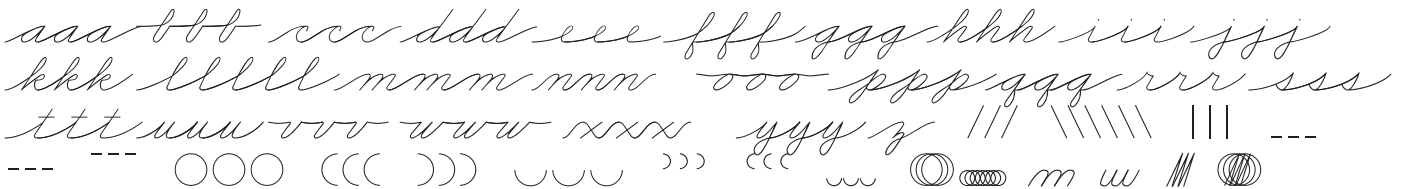 aaa bbb ccc ddd eee fff ggg hhh iii jjj
kkk lllll mmm nnn ooo ppp qqq rrr sss
ttt uuu vvv www xxx yyy z